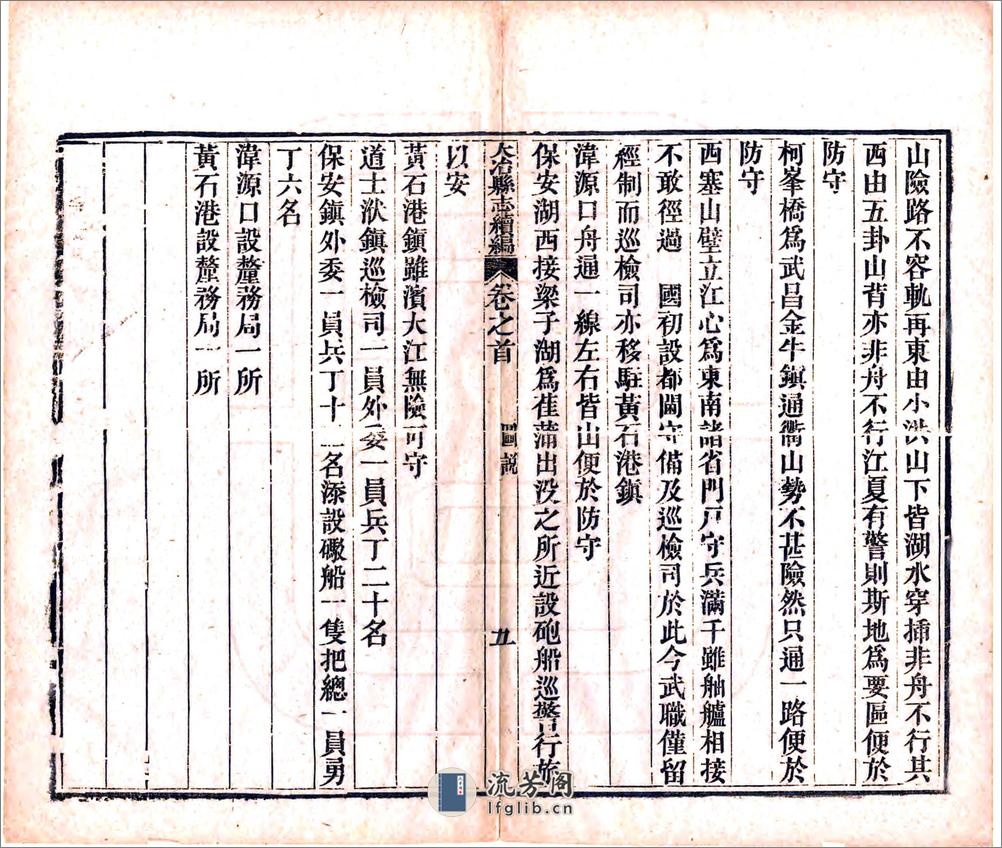 山險路不容軌再東由小洪山下皆湖水穿插非舟不行其
西由五卦山背亦非舟不行江夏有警則斯地爲要區便於
防守
柯峯橋爲武昌金牛鎭通衢山勢不甚險然只通一路便於
防守
西塞山壁立江心爲東南諸省門戶守兵滿千雖舳艫相接
不敢徑過　國初設都閫守備及巡檢司於此今武職僅留
經制而巡檢司亦移駐黃石港鎭
湋源口舟通一線左右皆山便於防守
保安湖西接梁子湖爲萑蒲出没之所近設砲船巡警行旅
大冶縣志續編　卷之首　圖說　五
以安
黃石港鎭雖濱大江無險可守
道士洑鎭巡檢司一員外委一員兵丁二十名
保安鎭外委一員兵丁十二名添設礮船一隻把總一員勇
丁六名
湋源口設釐務局一所
黃石港設釐務局一所
流芳阁
lfglib.cn